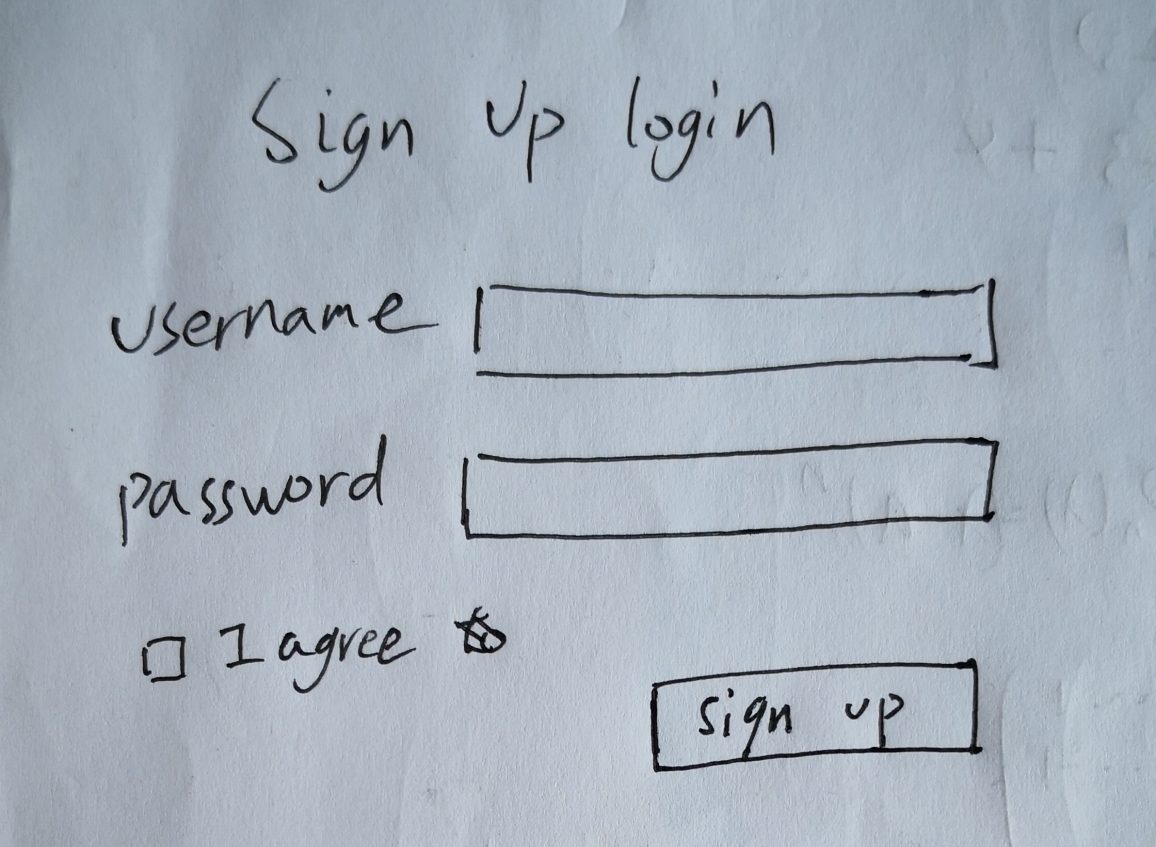 Sign Up login
username
password
I agree
sign up